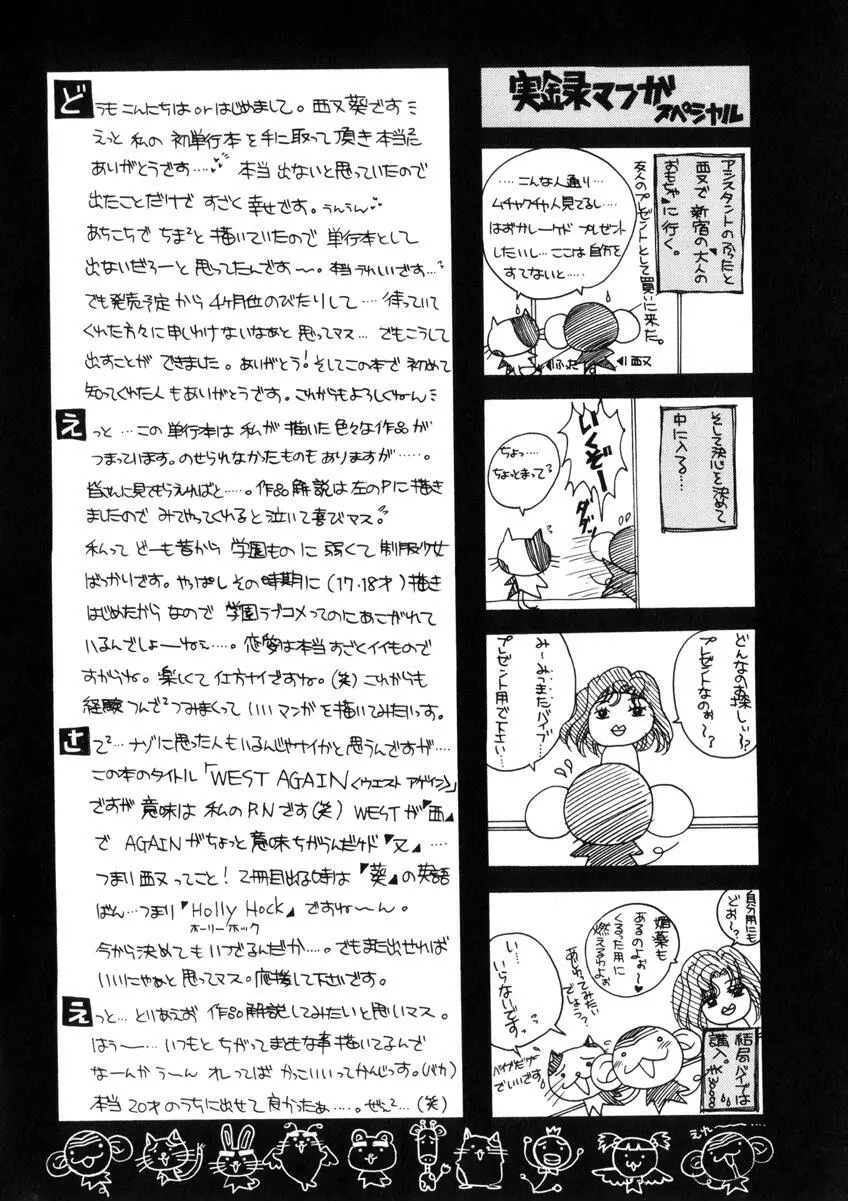 実録マンガ
スペシャル
アシスタントのぶったと
西又で新宿の大人の
おもちゃに行く。
友人のプレゼントとして買いに来た。
‥‥こんな人通り‥‥
ムチャクチャ人見てるし‥‥
はずかしーケド プレゼント
したいし‥‥ここは自分を
すてないと‥‥
西又
ぶった
そして決心を決めて
中に入る‥‥
いくぞー
ダダッ
ちょっ‥‥
ちょっとまって?
どんなのお探しぃ〜?
プレゼントなのぉ〜?
み〜みっきたんバイブ‥‥
プレゼント用で下さい‥‥
自分用にも
どぉ〜?
媚薬も
あるのよぉ〜♥
燃えるわよぉ
い‥‥
いらないですっ
バイブだけで
でいいです
結局バイブは
購入。¥30000
どうもこんにちはorはじめまして。西又葵です
えっと 私の 初単行本 を手に取って頂き 本当に
ありがとうです‥‥ 本当 出ないと思っていたので
出たことだけで すごく 幸せです。うんうん
あちこちで ちま²と 描いていたので 単行本として
出ないだろーと思ってたんです〜。本当うれしいです‥‥?
でも発売予定から 4ヶ月位のびたりして‥‥待っていて
くれた方々に申しわけないなぁと思ってマス‥‥ でもこうして
出すことが できました。ありがとう!そしてこの本で 初めて
知ってくれた人もありがとうです。これからもよろしくねん
えっと‥‥この 単行本は 私が 描いた色々な作品が
つまっています。のせられなかたものもありますが‥‥‥。
皆さんに見てもらえればと‥‥。作品解説は左のPに描き
ましたので みてやってくれると 泣いて喜びマス。
私って どーも昔から 学園もの に 弱くて 制服少女
ばっかりです。やっぱし その時期に(17.18才)描き
はじめたから なので 学園ラブコメってのにあこがれて
いるんでしょーねぇ‥‥。恋愛は本当 すごくイイもので
すからね。楽しくて仕方ナイですね。(笑)これからも
経験つんで²つみまくって いいマンガを描いてみたいっす。
さて²‥‥ナゾに思った人もいるんじゃナイかと思うんですが‥‥
この本のタイトル「WEST AGAIN<ウエスト アゲイン>」
ですが 意味は 私のP.Nです(笑) WESTが『西』
で AGAINがちょっと意味ちがうんだケド『又』‥‥
つまり西又ってこと! 2冊目出る時は『葵』の英語
ばん‥‥つまり『Holly Hock』ですね〜ん。
ホーリーホック
今から決めても いつでるんだか‥‥。でもまた出せれば
いいにゃぁと 思ってマス。応援して下さいです。
えっと‥‥ とりあえず 作品解説してみたいと思いマス。
はぅ〜‥‥いつもと ちがって まともな事 描いてるんで
なーんか うーん オレってば かっこいいってかんじっす。(バカ)
本当 20才のうちに出せて 良かたぁ‥‥。ぜぇ²‥‥(笑)